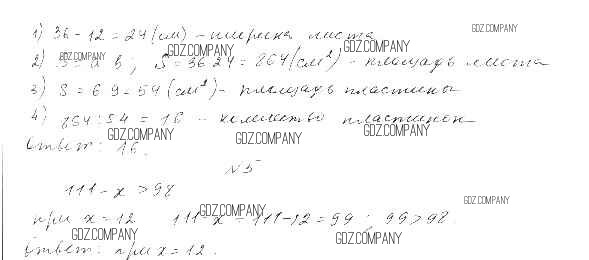 1) 36 - 12 = 24 (см) - ширина листа
GDZ.COMPANY
2) S = a b; S = 36 24 = 864 (см²) - площадь листа
GDZ.COMPANY GDZ.COMPANY GDZ.COMPANY
3) S = 6 9 = 54 (см²) - площадь пластины
4) 864 : 54 = 16 - количество пластинок
GDZ.COMPANY GDZ.COMPANY GDZ.COMPANY
Ответ: 16.
№5
111 - x > 98
GDZ.COMPANY GDZ.COMPANY
при x = 12 111 - x = 111 - 12 = 99; 99 > 98.
GDZ.COMPANY GDZ.COMPANY
Ответ: при x = 12.